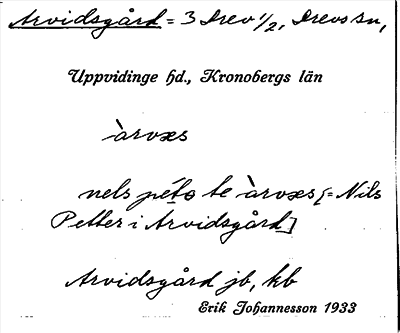 Arvidsgård = 3 Drev 1/2, Drevs sn,
Uppvidinge hd., Kronobergs län
àrvəs
nels péto te àrvəs [= Nils
Petter i Arvidsgård]
Arvidsgård jb, kb
Erik Johannesson 1933